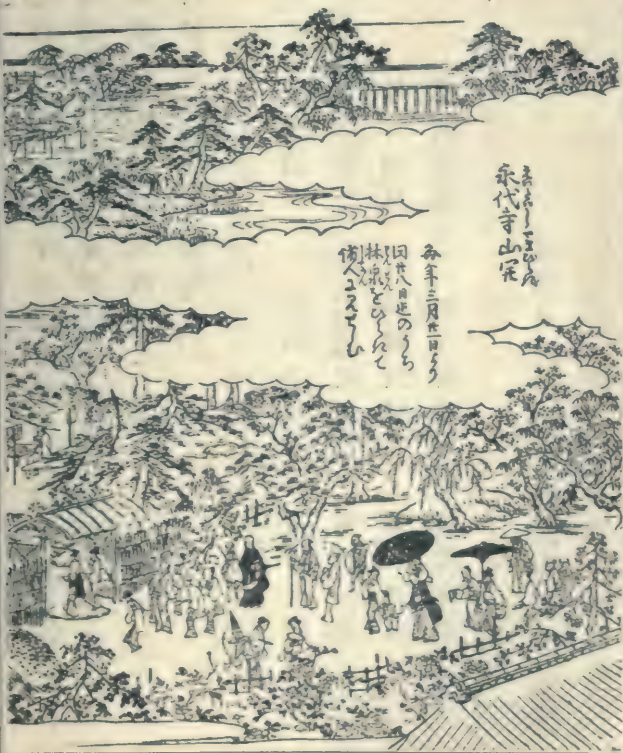 永代寺山開
毎年三月廿一日より
同廿八日迄のうち
林泉をひらきて
諸人に見せしむ